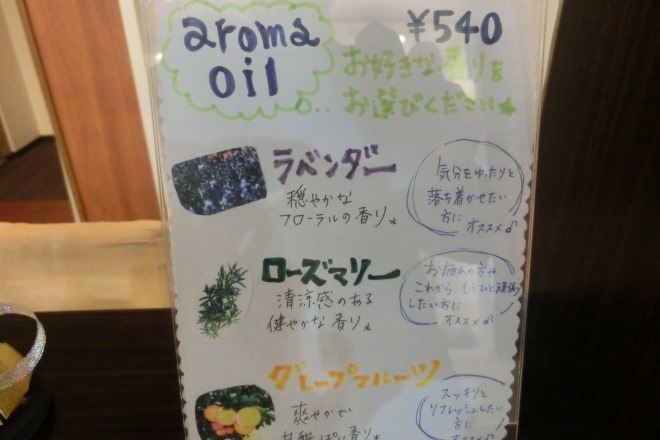 aroma
oil
¥540
お好きな香りを
お選びください
ラベンダー
穏やかな
フローラルの香り
気分をゆったりと
落ち着かせたい
方に
オススメ♪
ローズマリー
清涼感のある
健やかな香り
お疲れの方や
これから もうひと頑張り
したい方に
オススメ♪
グレープフルーツ
爽やかで
甘酸っぱい香り
スッキリと
リフレッシュしたい
方に
オススメ♪